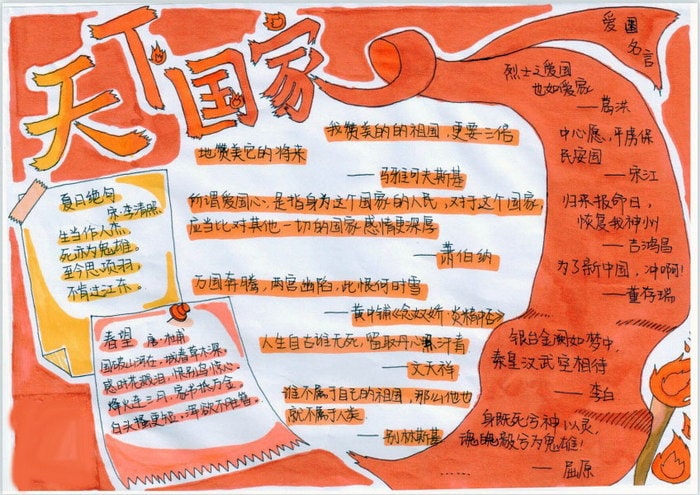 天下国家
爱国
名言
烈士之爱国
也如爱家
——葛洪
中心愿,平虏保
民安国
——宋江
归来报命日,
恢复我神州
——吉鸿昌
为了新中国,冲啊!
——董存瑞
银台金阙如梦中,
秦皇汉武空相待
——李白
身既死兮神以灵,
魂魄毅兮为鬼雄!
——屈原
我赞美的的祖国,更要三倍
地赞美它的将来
——马雅可夫斯基
所谓爱国心,是指身为这个国家的人民,对于这个国家,
应当比对其他一切的国家感情更深厚
——萧伯纳
万国奔腾,两宫幽陷,此恨何时雪
——黄中辅《念奴娇·炎精中否》
人生自古谁无死,留取丹心照汗青
——文天祥
谁不属于自己的祖国,那么他也
就不属于人类
——别林斯基
夏日绝句
宋·李清照
生当作人杰,
死亦为鬼雄。
至今思项羽,
不肯过江东。
春望 唐·杜甫
国破山河在,城春草木深。
感时花溅泪,恨别鸟惊心。
烽火连三月,家书抵万金。
白头搔更短,浑欲不胜簪。